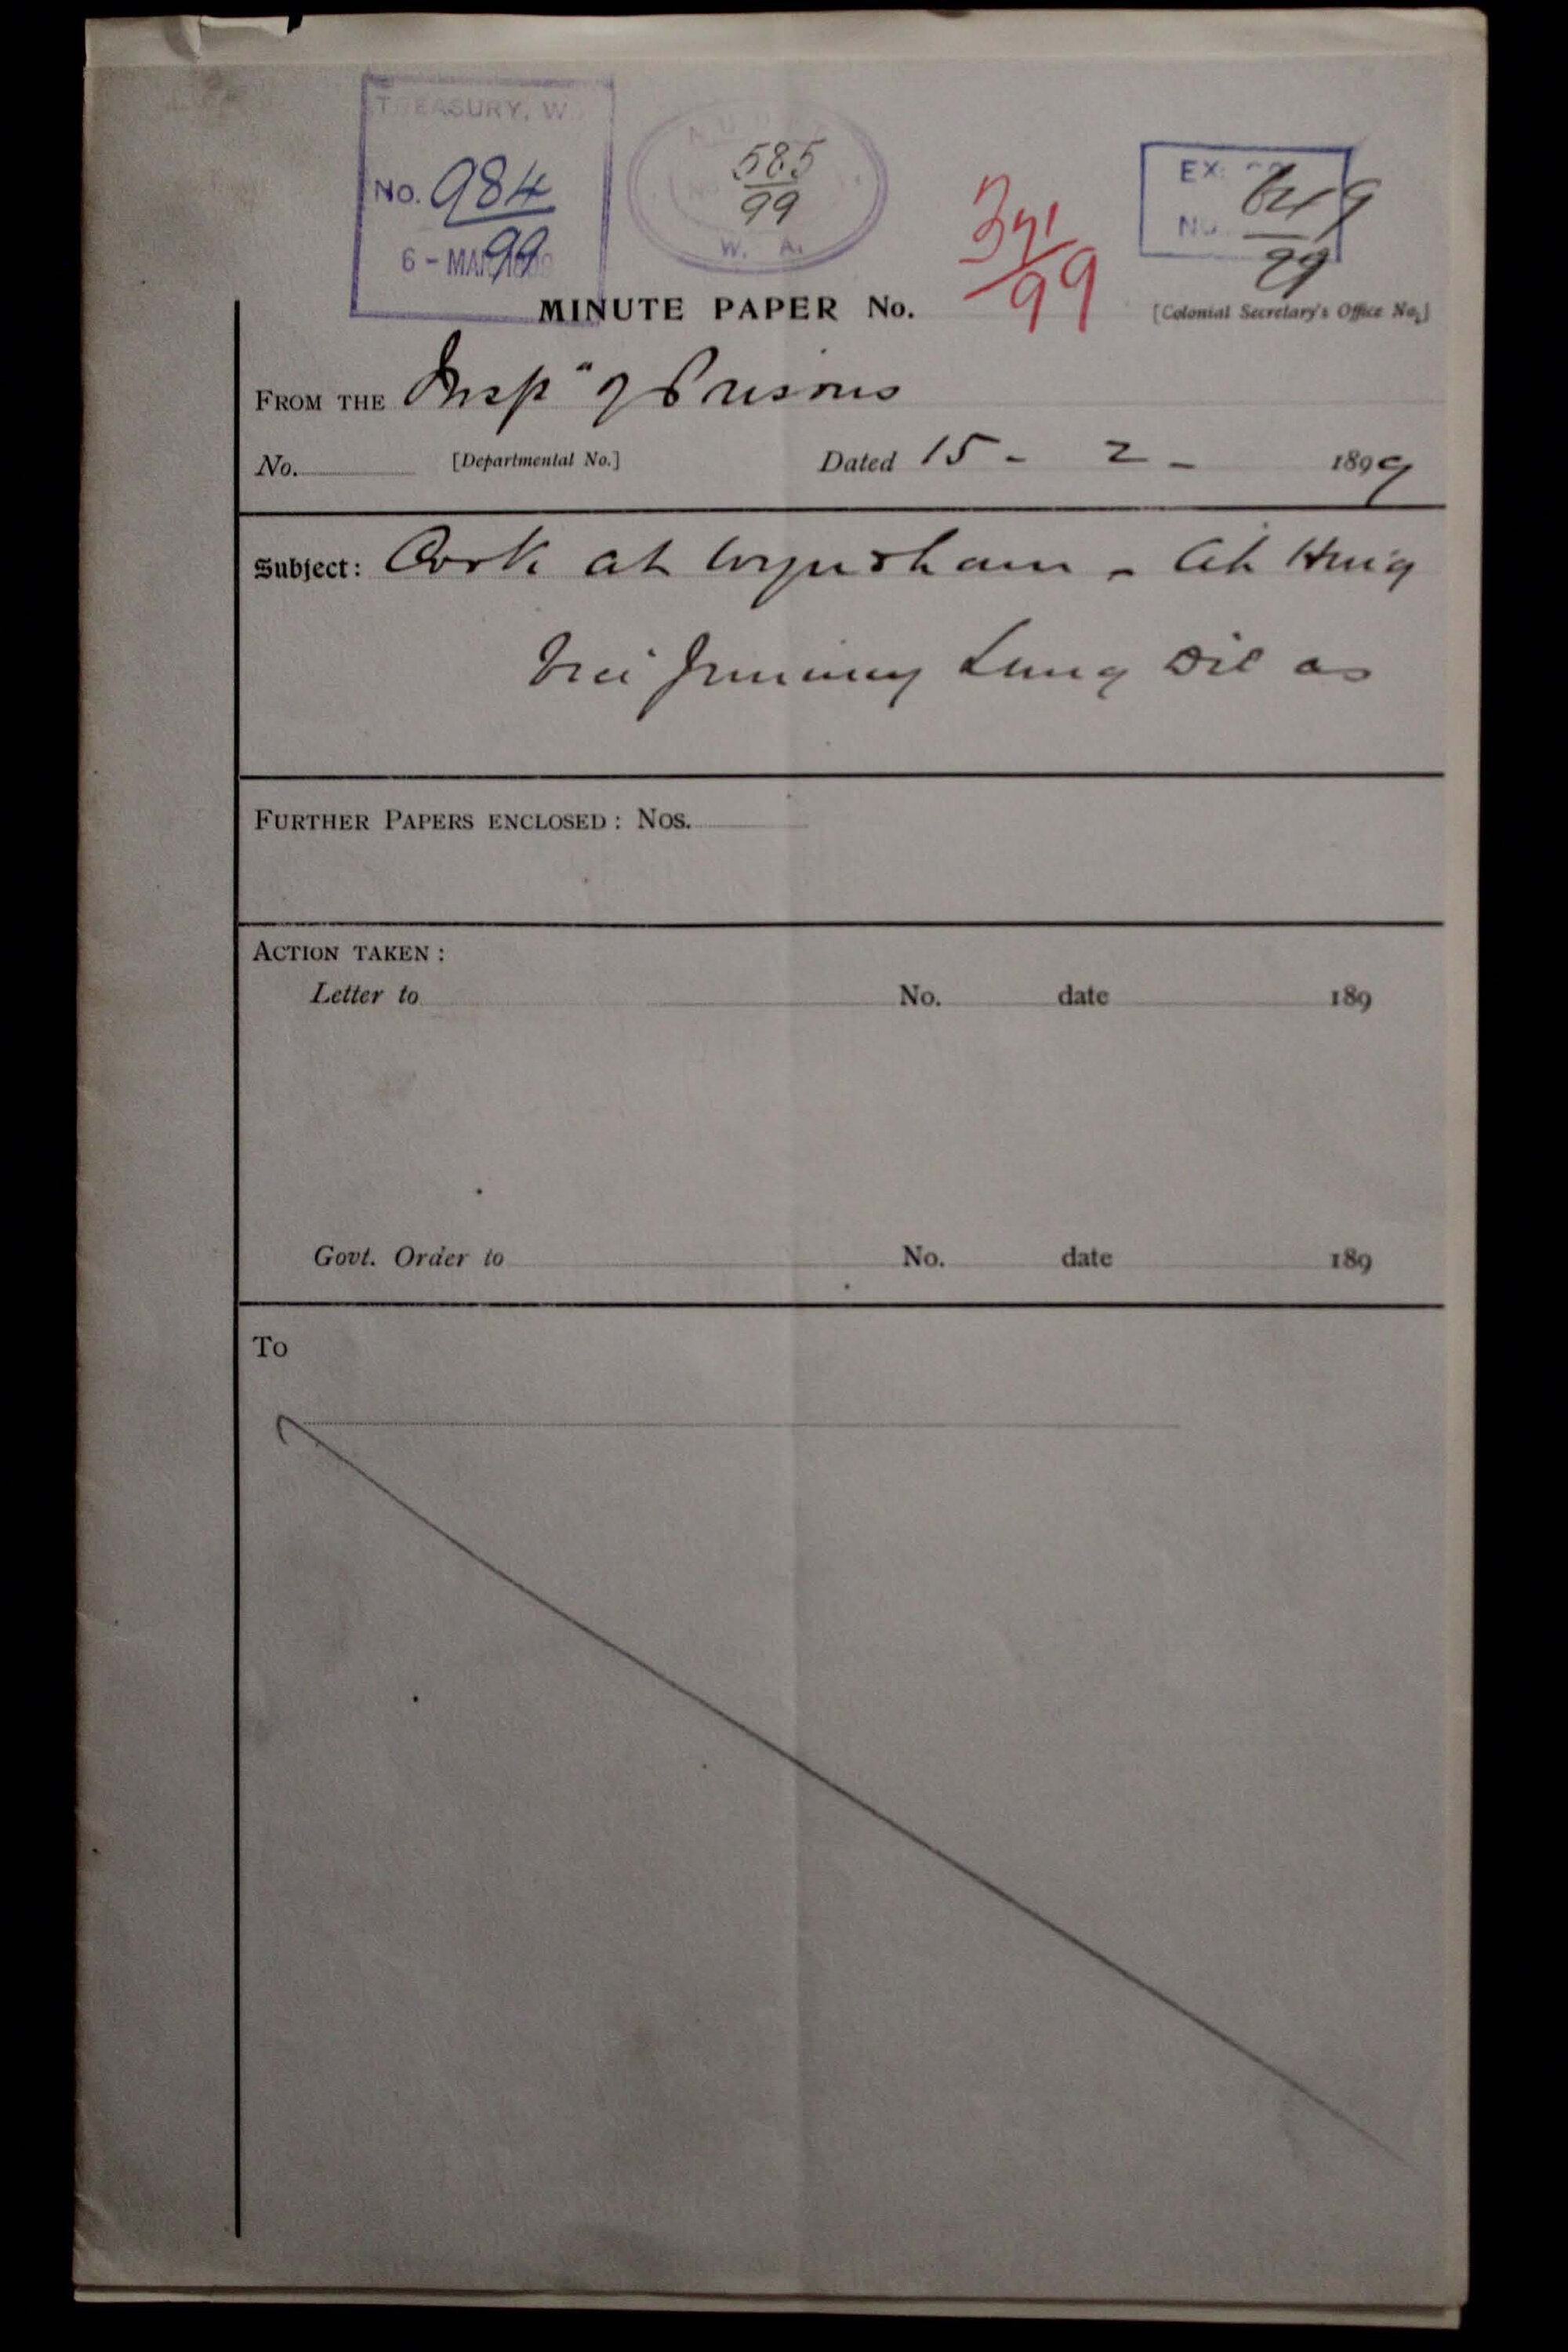 TREASURY, W.
No. 984
99
6 - MAR 1899
AUDIT
585
99
W. A.
371
99
EX.
No.
99
MINUTE PAPER No.
[Colonial Secretary's Office No.]
FROM THE Inspr of Prisons
No. [Departmental No.] Dated 15 - 2 - 1899
Subject: Cook at Wyndham - Ah Hing
vice Jimmy Lung Dil as
FURTHER PAPERS ENCLOSED: Nos.
ACTION TAKEN:
Letter to No. date 189
Govt. Order to No. date 189
To